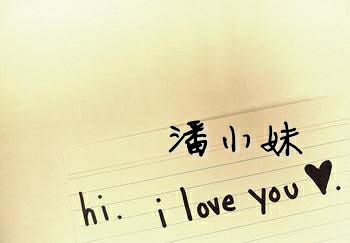 潘小妹
hi. i love you ♥.